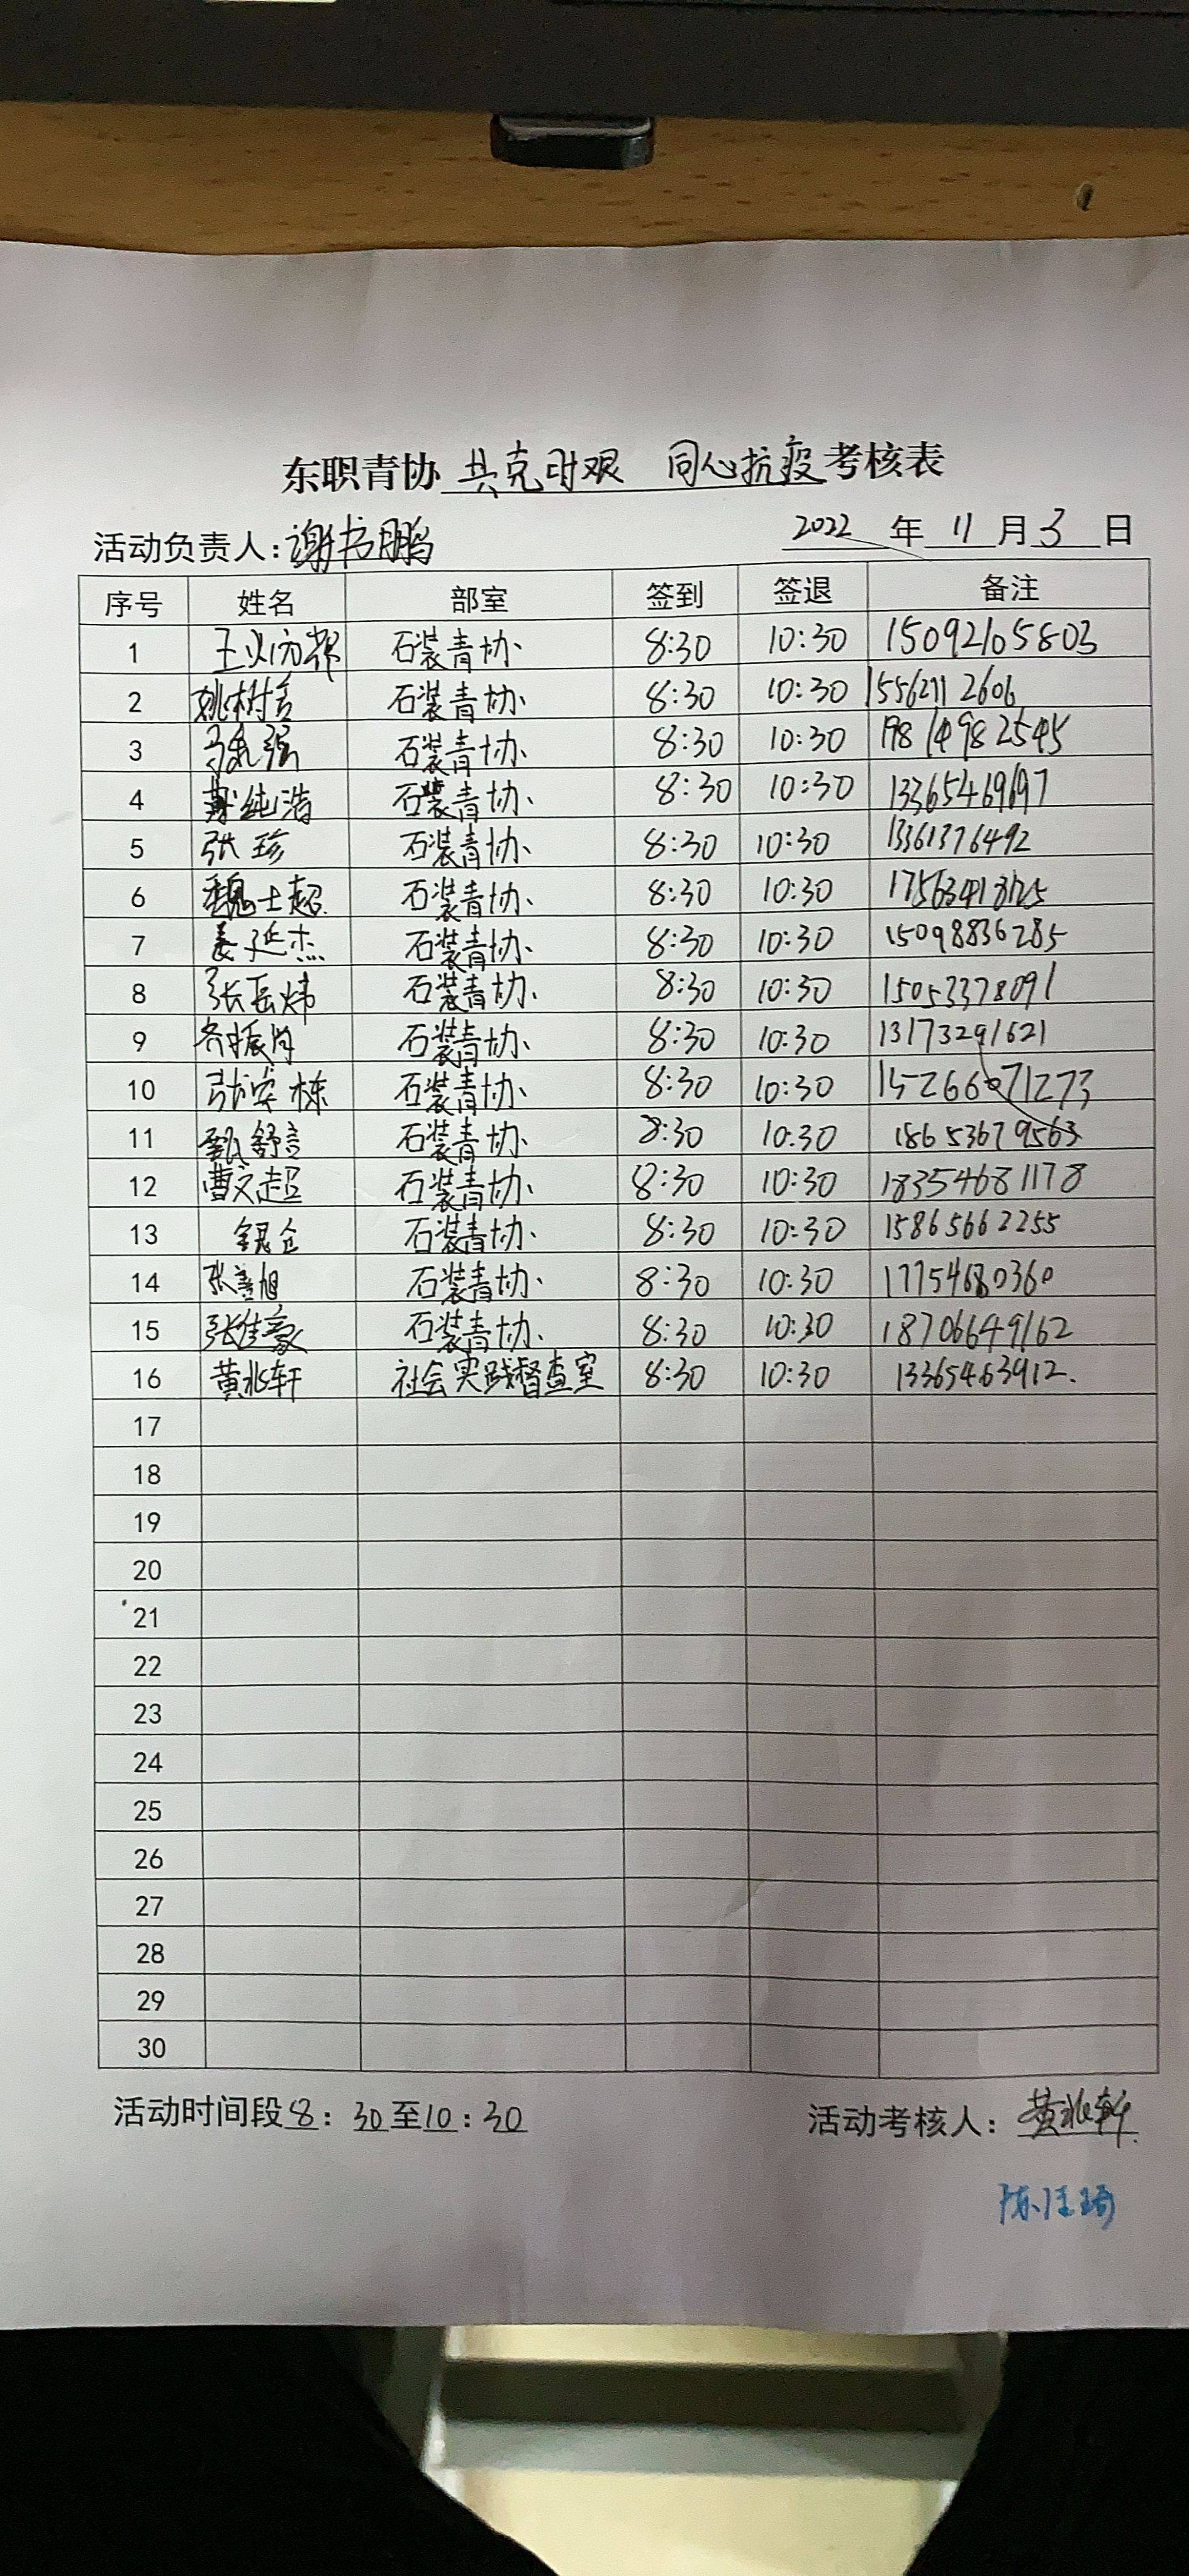 东职青协 共克时艰 同心抗疫 考核表
活动负责人：谢书鹏 2022 年 11 月 3 日
序号 姓名 部室 签到 签退 备注
1 石装青协 8:30 10:30 15092105803
2 姚树言 石装青协 8:30 10:30 15562112606
3 石装青协 8:30 10:30 19814982545
4 纯浩 石装青协 8:30 10:30 13365469697
5 张珍 石装青协 8:30 10:30 13361376492
6 魏士超 石装青协 8:30 10:30 17563418125
7 姜延杰 石装青协 8:30 10:30 15098836285
8 张岳炜 石装青协 8:30 10:30 15053378091
9 石装青协 8:30 10:30 13173291621
10 张安栋 石装青协 8:30 10:30 15266071273
11 甄舒言 石装青协 8:30 10:30 18653679563
12 曹文超 石装青协 8:30 10:30 18354681178
13 石装青协 8:30 10:30 15865662255
14 张善旭 石装青协 8:30 10:30 17754680360
15 张佳豪 石装青协 8:30 10:30 18706649162
16 黄兆轩 社会实践督查室 8:30 10:30 13365463912.
17
18
19
20
21
22
23
24
25
26
27
28
29
30
活动时间段 8：30 至 10：30 活动考核人：黄兆轩